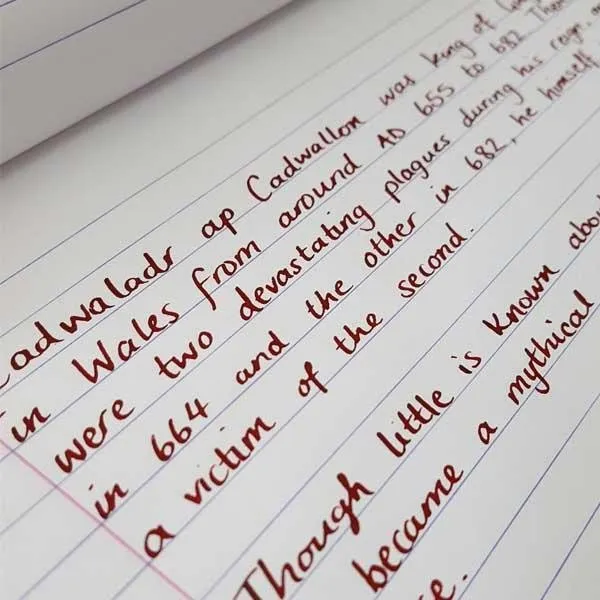 Cadwaladr ap Cadwallon was king of
in Wales from around AD 655 to 682
were two devastating plagues during his reign
in 664 and the other in 682, he himself
a victim of the second.
Though little is known
became a mythical